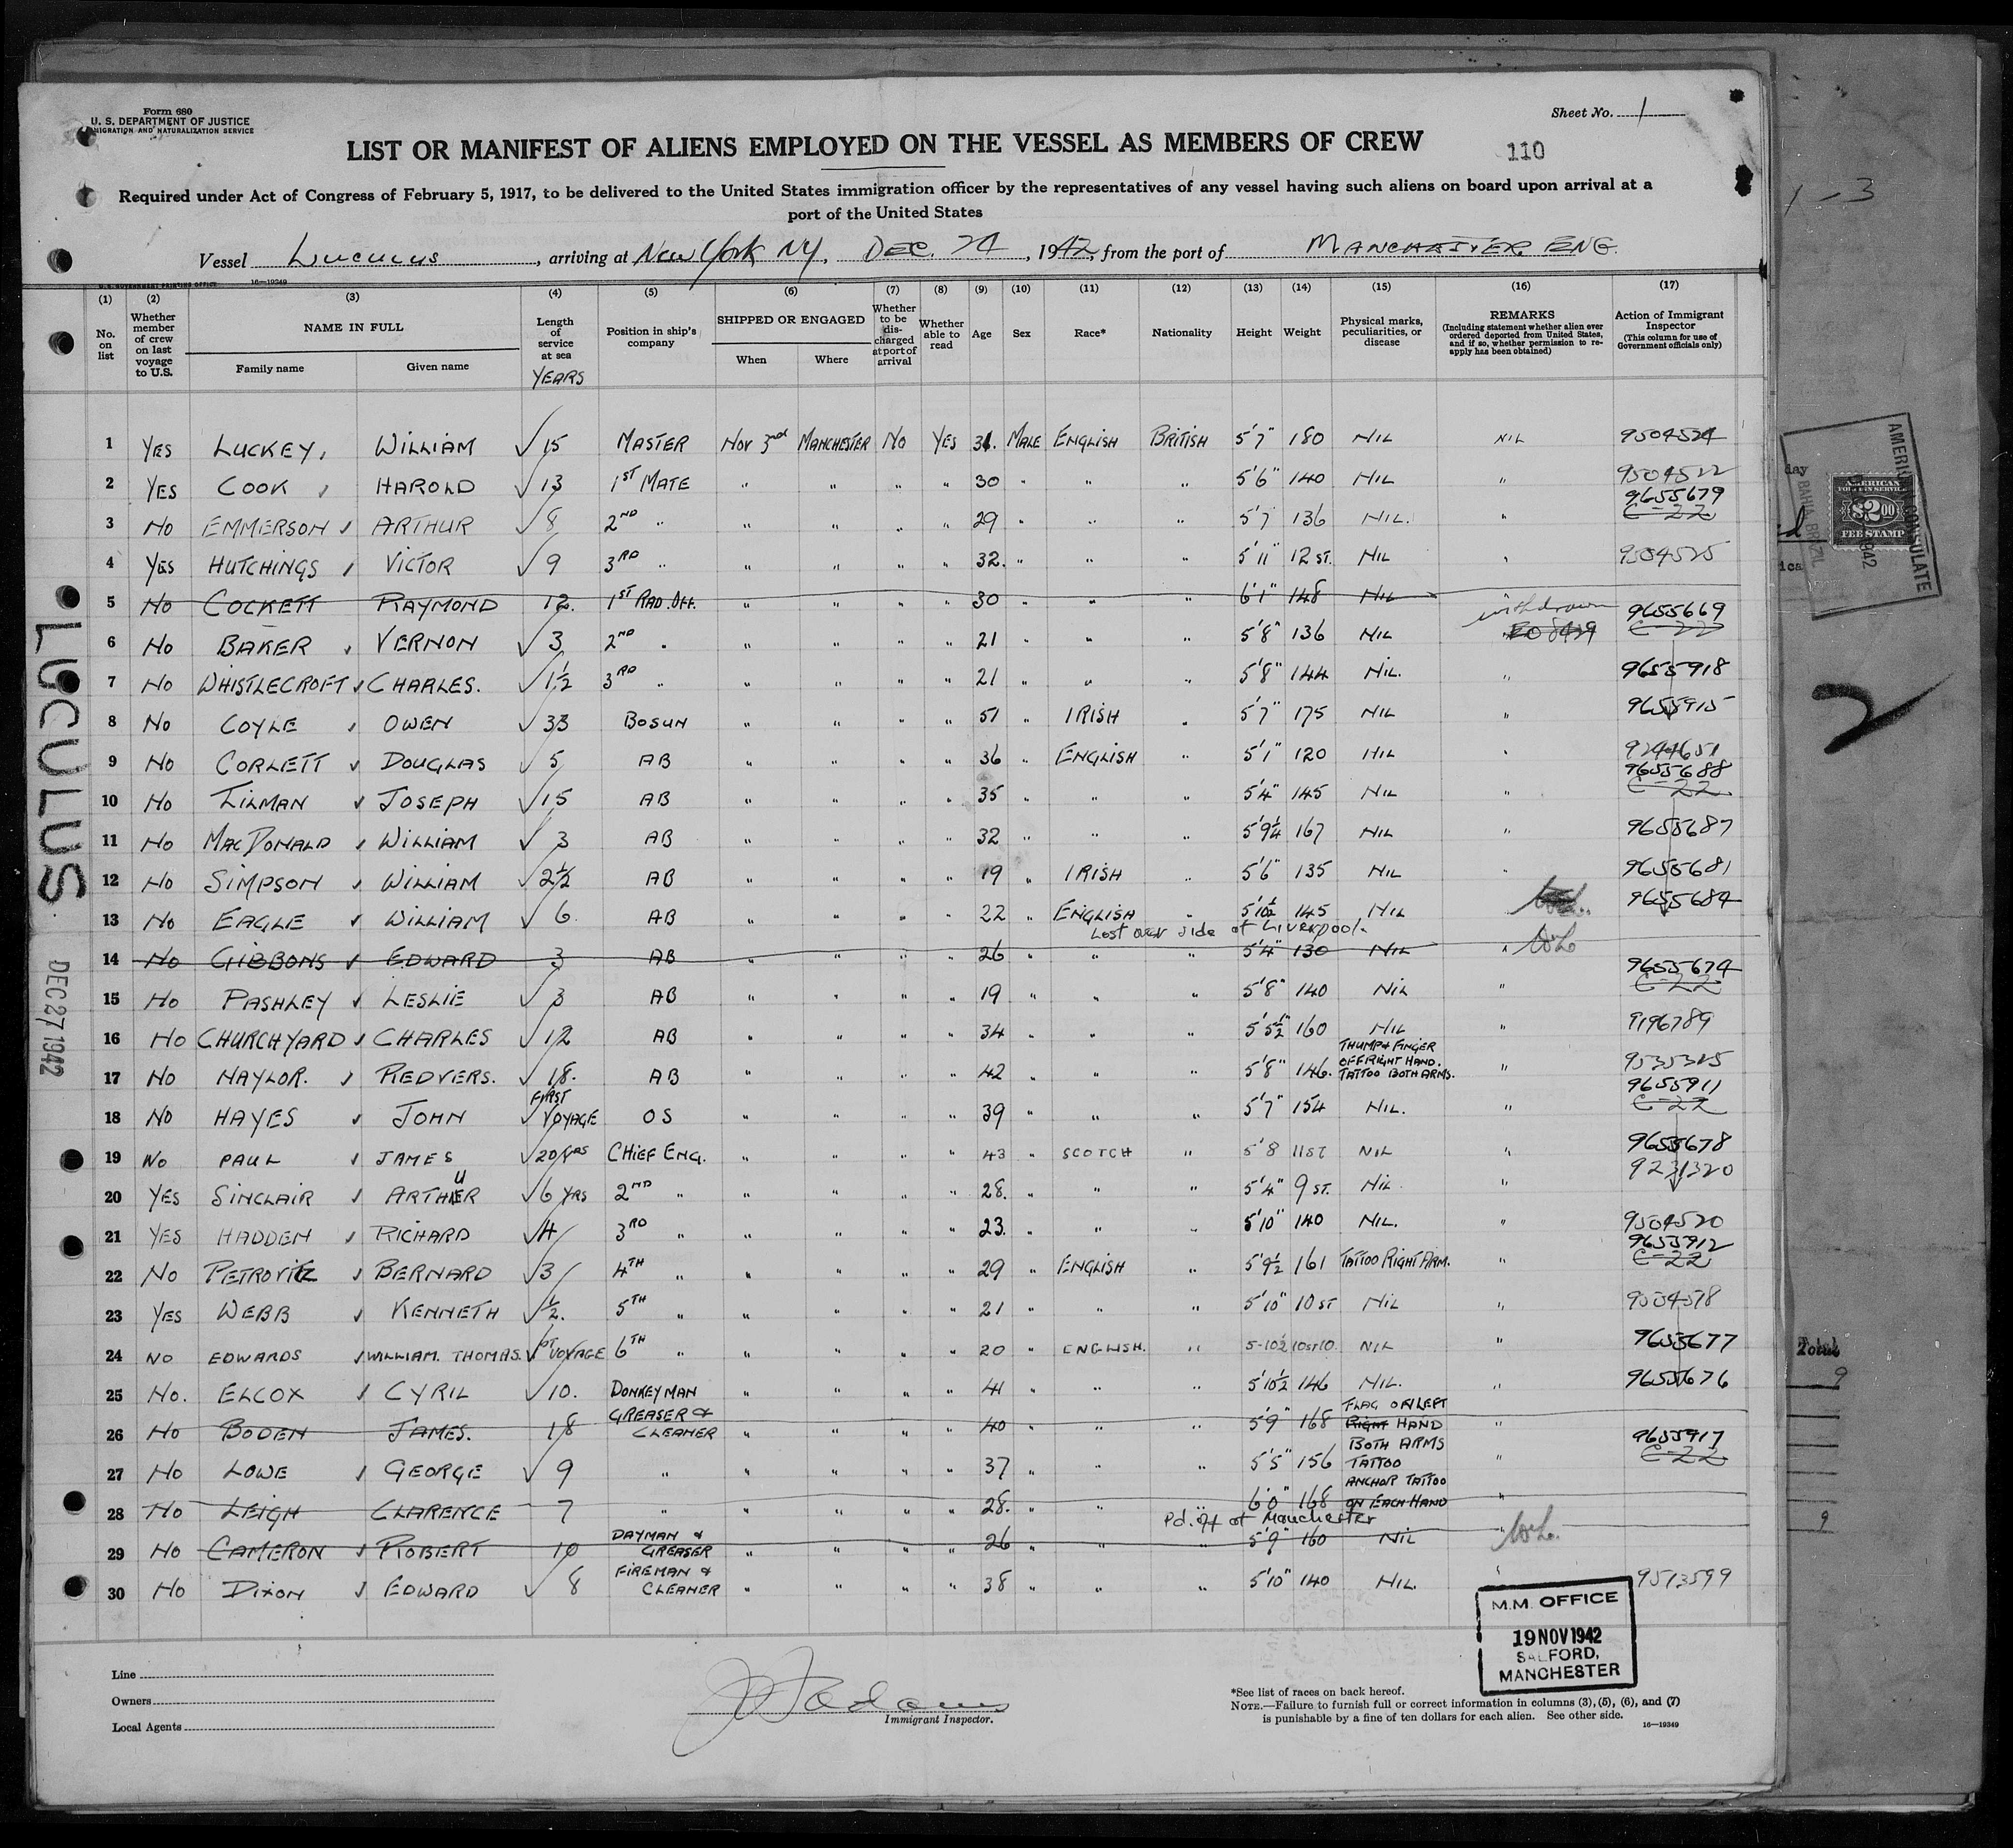 Form 680
U. S. DEPARTMENT OF JUSTICE
MIGRATION AND NATURALIZATION SERVICE
Sheet No. 1
LIST OR MANIFEST OF ALIENS EMPLOYED ON THE VESSEL AS MEMBERS OF CREW
110
Required under Act of Congress of February 5, 1917, to be delivered to the United States immigration officer by the representatives of any vessel having such aliens on board upon arrival at a
port of the United States
Vessel Lucullus, arriving at New York NY, DEC. 24, 1942, from the port of MANCHESTER ENG.
U. S. GOVERNMENT PRINTING OFFICE 16—19349
(1) (2) (3) (4) (5) (6) (7) (8) (9) (10) (11) (12) (13) (14) (15) (16) (17)
No. on list
Whether member of crew on last voyage to U.S.
NAME IN FULL
Family name Given name
Length of service at sea
YEARS
Position in ship's company
SHIPPED OR ENGAGED
When Where
Whether to be discharged at port of arrival
Whether able to read
Age Sex Race* Nationality Height Weight
Physical marks, peculiarities, or disease
REMARKS
(Including statement whether alien ever ordered deported from United States, and if so, whether permission to reapply has been obtained)
Action of Immigrant Inspector
(This column for use of Government officials only)
1 YES LUCKEY, WILLIAM √ 15 MASTER NOV 3rd MANCHESTER NO YES 31. MALE ENGLISH BRITISH 5'7" 180 NIL NIL 9504524
2 YES COOK HAROLD √ 13 1ST MATE " " " " 30 " " " 5'6" 140 NIL " 9504522
9655679
3 NO EMMERSON √ ARTHUR √ 8 2ND " " " " " 29 " " " 5'7 136 NIL. " C-22
4 YES HUTCHINGS VICTOR √ 9 3RD " " " " " 32. " " " 5'11" 12 ST. NIL " 9504525
5 NO COCKETT RAYMOND 12. 1ST RAD. Off. " " " " 30 " " " 6'1" 148 NIL "
withdrawn 9655669
6 NO BAKER VERNON √ 3 2ND " " " " " 21 " " " 5'8" 136 NIL C-22
7 NO WHISTLECROFT √ CHARLES. √ 1½ 3RD " " " " " 21 " " " 5'8" 144 NIL. " 9655918
8 NO COYLE OWEN √ 33 BOSUN " " " " 51 " IRISH " 5'7" 175 NIL " 9655915
9 NO CORLETT √ DOUGLAS √ 5 AB " " " " 36 " ENGLISH " 5'1" 120 NIL " 9244651
9655688
10 NO TILMAN √ JOSEPH √ 15 AB " " " " 35 " " " 5'4" 145 NIL " C-22
11 NO MACDONALD √ WILLIAM √ 3 AB " " " " 32 " " " 5'9¼ 167 NIL " 9655687
12 NO SIMPSON √ WILLIAM √ 2½ AB " " " " 19 " IRISH " 5'6" 135 NIL " 9655681
13 NO EAGLE √ WILLIAM √ 6. AB " " " " 22 " ENGLISH " 5'10½ 145 NIL 9655684
Lost over side at Liverpool.
14 NO GIBBONS √ EDWARD 3 AB " " " " 26 " " " 5'4" 130 NIL "
9655674
15 NO PASHLEY √ LESLIE √ 3 AB " " " " 19 " " " 5'8" 140 NIL " C-22
16 NO CHURCHYARD √ CHARLES √ 12 AB " " " " 34 " " " 5'5½" 160 NIL " 9196789
17 NO NAYLOR. √ REDVERS. √ 18. AB " " " " 42 " " " 5'8" 146. THUMP & FINGER OFF RIGHT HAND. TATTOO BOTH ARMS. " 9535325
9655911
18 NO HAYES √ JOHN √ FIRST VOYAGE OS " " " " 39 " " " 5'7" 154 NIL. " C-22
19 NO PAUL √ JAMES √ 20 YRS CHIEF ENG. " " " " 43 " SCOTCH " 5'8 11 ST NIL " 9655678
9231320
20 YES SINCLAIR √ ARTHUR √ 6 YRS 2ND " " " " " 28. " " " 5'4" 9 ST. NIL. "
21 YES HADDEN √ RICHARD √ 4 3RD " " " " " 23. " " " 5'10" 140 NIL. " 9504520
9655912
22 NO PETROVITZ √ BERNARD √ 3 4TH " " " " " 29 " ENGLISH " 5'9½ 161 TATTOO RIGHT ARM. " C-22
23 YES WEBB √ KENNETH √ ½. 5TH " " " " " 21 " " " 5'10" 10 ST NIL " 9504518
24 NO EDWARDS √ WILLIAM. THOMAS. √ 1ST VOYAGE 6TH " " " " " 20 " ENGLISH. " 5-10½ 10 ST 10. NIL " 9655677
25 NO. ELCOX √ CYRIL √ 10. DONKEYMAN " " " " 41 " " " 5'10½ 146 NIL. " 9655676
26 NO BODEN JAMES. 18 GREASER & CLEANER " " " " 40 " " " 5'9" 168 FLAG ON LEFT RIGHT HAND "
9655917
27 NO LOWE √ GEORGE √ 9 " " " " " 37 " " " 5'5" 156 BOTH ARMS TATTOO " C-22
28 NO LEIGH CLARENCE 7 " " " " " 28. " " " 6'0" 168 ANCHOR TATTOO ON EACH HAND "
Pd. off at Manchester
29 NO CAMERON √ ROBERT 10 DAYMAN & GREASER " " " " 26 " " " 5'9" 160 NIL "
30 NO DIXON √ EDWARD √ 8 FIREMAN & CLEANER " " " " 38 " " " 5'10" 140 NIL. " 9513599
LUCULUS
DEC 27 1942
M.M. OFFICE
19 NOV 1942
SALFORD,
MANCHESTER
Line
Owners
Local Agents
Immigrant Inspector.
*See list of races on back hereof.
NOTE.—Failure to furnish full or correct information in columns (3), (5), (6), and (7)
is punishable by a fine of ten dollars for each alien. See other side.
16—19349
1-3
day
AMERICAN CONSULATE
BAHIA, BRAZIL
AMERICAN
$2.00
FEE STAMP
1942
2
Total
9
9